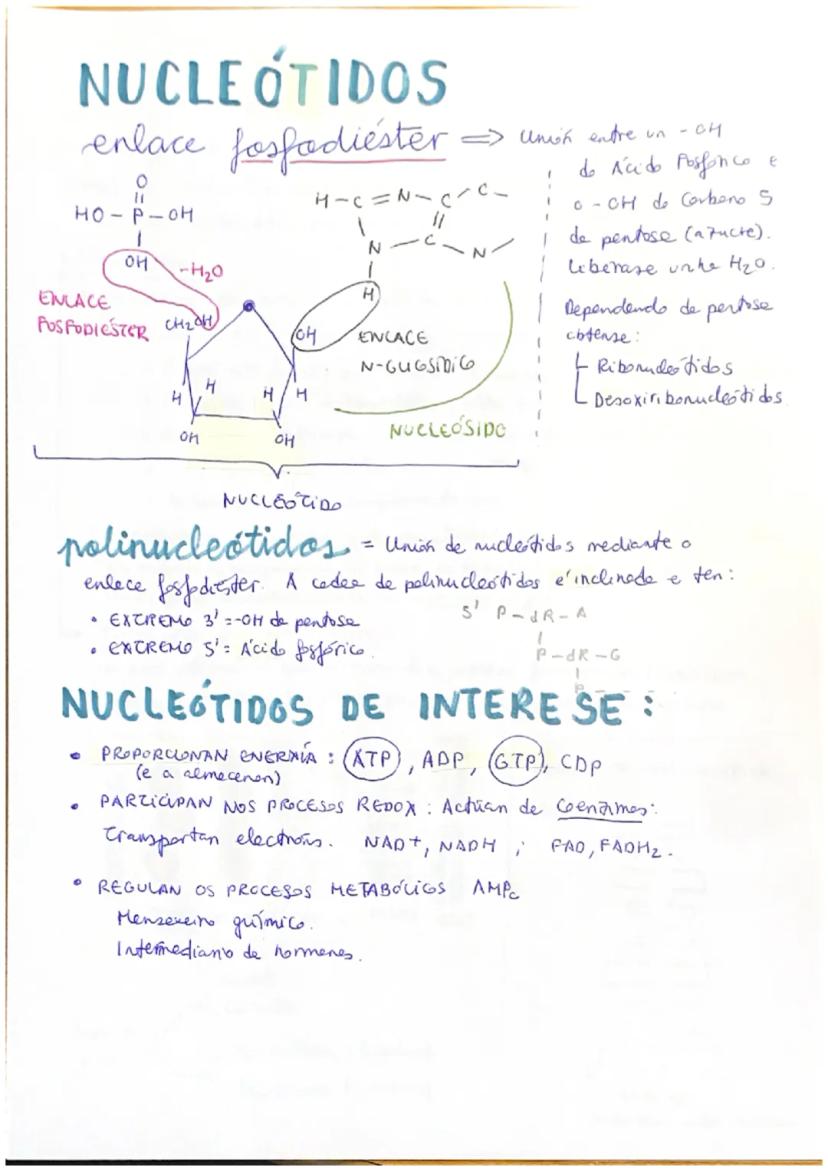 NUCLEÓTIDOS
enlace fosfodiéster ⇒ Unión entre un -OH
do Ácido Fosfórico e
o -OH do Carbono 5
da pentosa (azucre).
Libérase unha H2O.
Dependendo da pentosa
obtense:
Ribonucleótidos
Desoxirribonucleótidos.
O
HO - P - OH
OH
-H2O
ENLACE
FOSFODIÉSTER
CH2OH
H - C = N - C - C -
N - C - N
H
OH
ENLACE
N-GLICOSÍDICO
H H H H
OH OH
NUCLEÓSIDO
NUCLEÓTIDO
polinucleótidos = Unión de nucleótidos mediante o
enlace fosfodiéster. A cadea de polinucleótidos é inclinada e ten:
• EXTREMO 3' = -OH da pentosa
• EXTREMO 5' = Ácido fosfórico.
5' P - dR - A
P - dR - G
P
NUCLEÓTIDOS DE INTERESE:
• PROPORCIONAN ENERXÍA : ATP, ADP, GTP, CDP
(e a almacenan)
• PARTICIPAN NOS PROCESOS REDOX : Actúan de Coenzimas:
Transportan electróns. NAD+, NADH ; FAD, FADH2.
• REGULAN OS PROCESOS METABÓLICOS AMPc
Mensaxeiro químico.
Intermediario de hormonas.